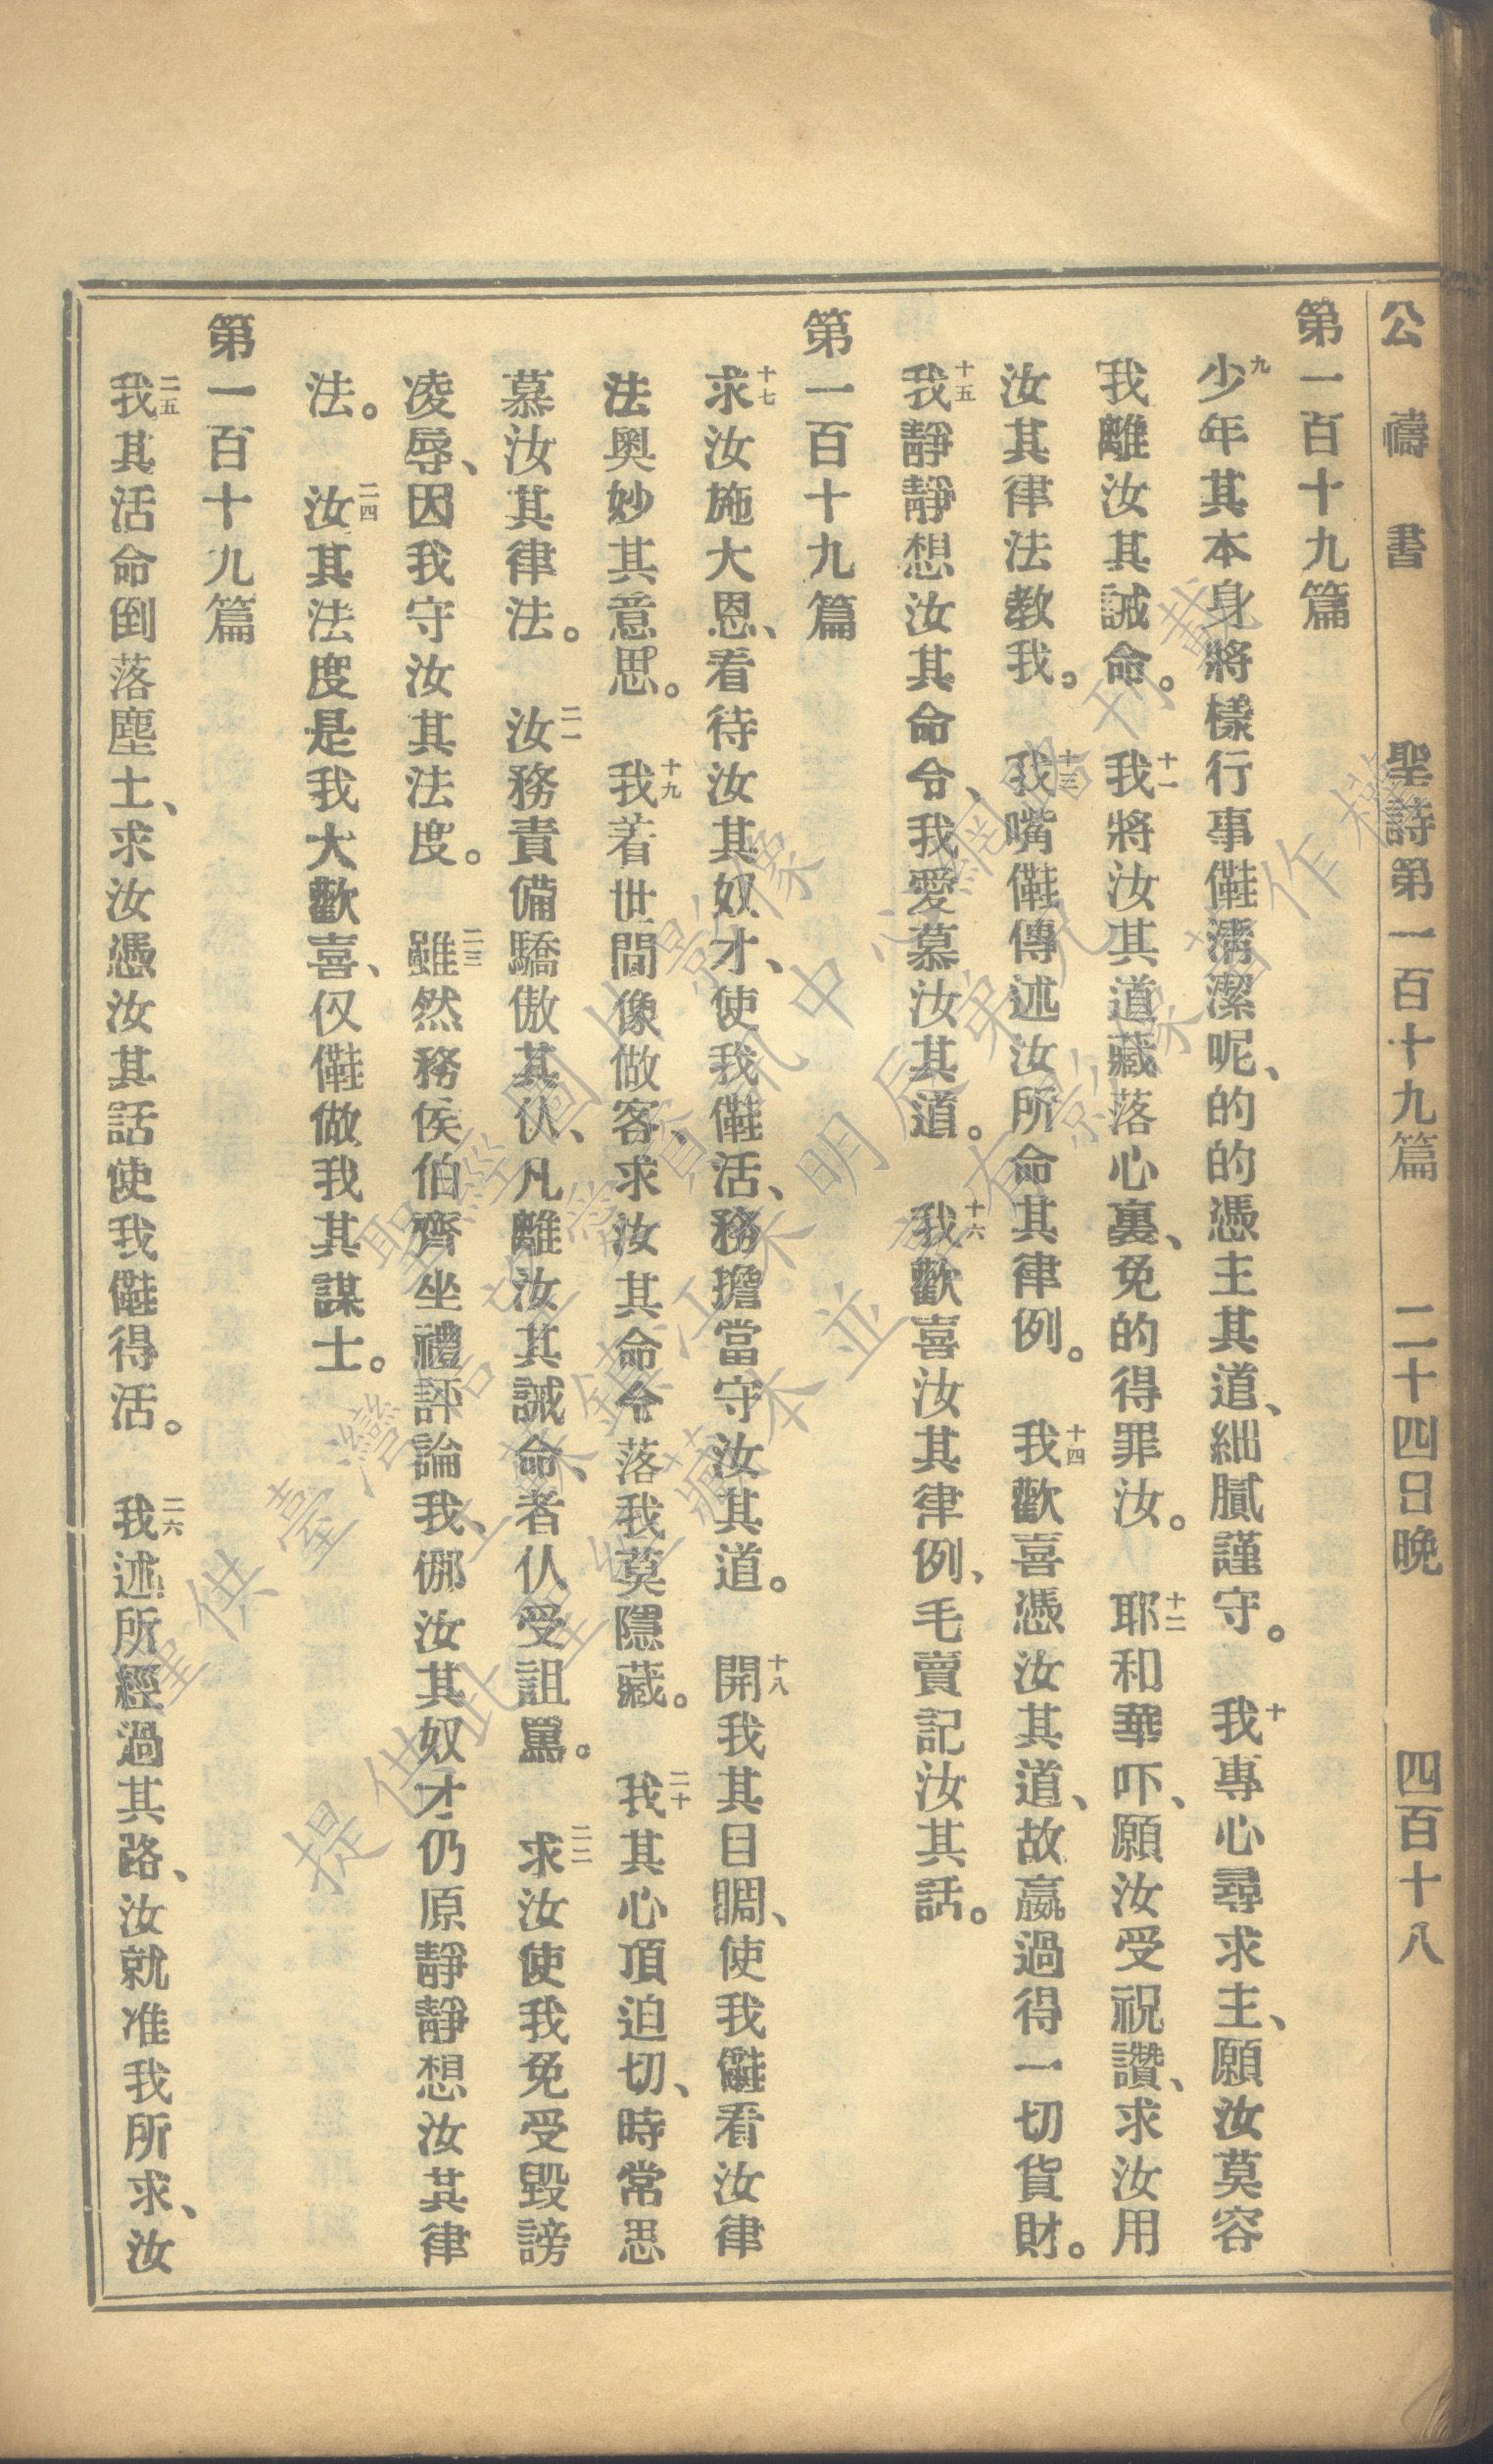 公禱書 聖詩第一百十九篇 二十四日晚 四百十八
第一百十九篇
九少年其本身將樣行事𠆧清潔呢、的的憑主其道、細膩謹守。 十我專心尋求主、願汝莫容
我離汝其誡命。 十一我將汝其道藏落心裏、免的得罪汝。 十二耶和華吓、願汝受祝讚、求汝用
汝其律法教我。 十三我嘴𠆧傳述汝所命其律例。 十四我歡喜憑汝其道、故嬴過得一切貨財。
十五我靜靜想汝其命令、我愛慕汝其道。 十六我歡喜汝其律例、毛賣記汝其話。
第一百十九篇
十七求汝施大恩、看待汝其奴才、使我𠆧活、務擔當守汝其道。 十八開我其目睭、使我𠆧看汝律
法奧妙其意思。 十九我著世間像做客、求汝其命令落我莫隱藏。 二十我其心頂迫切、時常思
慕汝其律法。 二一汝務責備驕傲其伙、凡離汝其誡命、者仈受詛罵。 二二求汝使我免受毀謗
凌辱、因我守汝其法度。 二三雖然務侯伯齊坐禮評論我、倻汝其奴才仍原靜靜想汝其律
法。 二四汝其法度是我大歡喜、仅𠆧做我其謀士。
第一百十九篇
二五我其活命倒落塵土、求汝憑汝其話使我𠆧得活。 二六我述所經過其路、汝就准我所求、汝